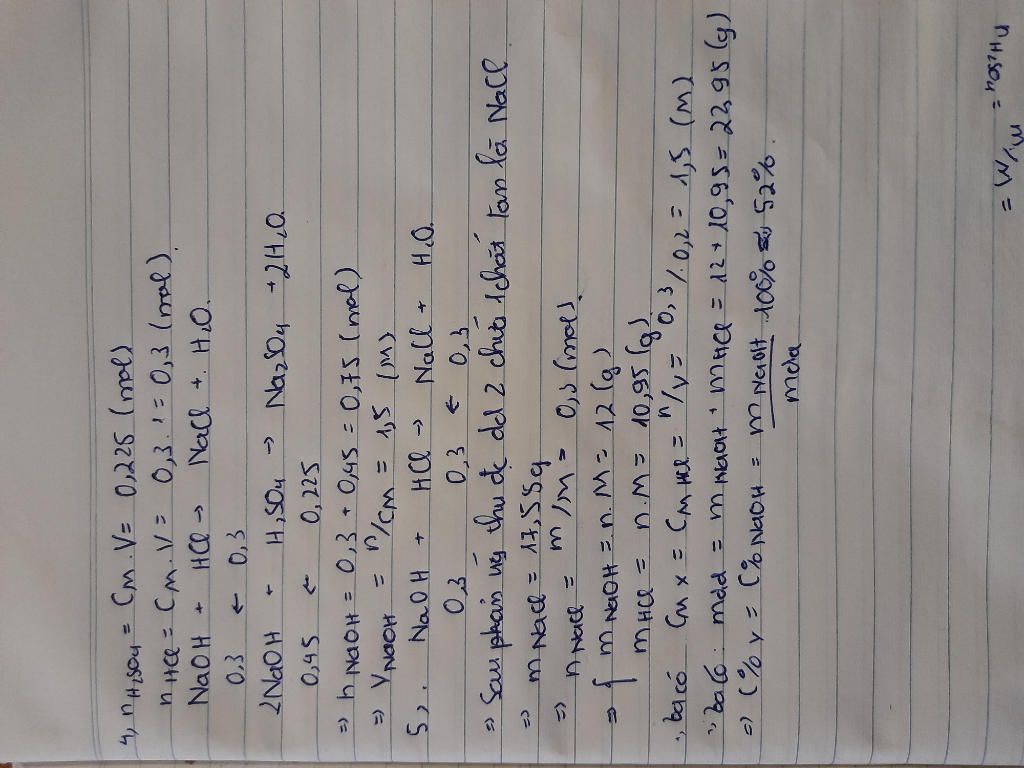 4, nH₂SO₄ = CM.V = 0,225 (mol)
nHCl = CM.V = 0,3.1 = 0,3 (mol).
NaOH + HCl → NaCl + H₂O.
0,3 ← 0,3
2NaOH + H₂SO₄ → Na₂SO₄ + 2H₂O.
0,45 ← 0,225
=> nNaOH = 0,3 + 0,45 = 0,75 (mol)
=> VNaOH = n/CM = 1,5 (M)
5, . NaOH + HCl → NaCl + H₂O.
0,3 0,3 ← 0,3
=> Sau phản ứng thu đc dd Z chứa 1 chất tan là NaCl
=> mNaCl = 17,55g
=> nNaCl = m/M = 0,3 (mol).
=> { mNaOH = n.M = 12 (g)
mHCl = n.M = 10,95 (g)
, ta có CM x = CM HCl = n/V = 0,3 / 0,2 = 1,5 (M)
, ta có : mdd = mNaOH + mHCl = 12 + 10,95 = 22,95 (g)
=> C% Y = C% NaOH = mNaOH / mdd . 100% = 52%.
= m/M = nH₂SO₄